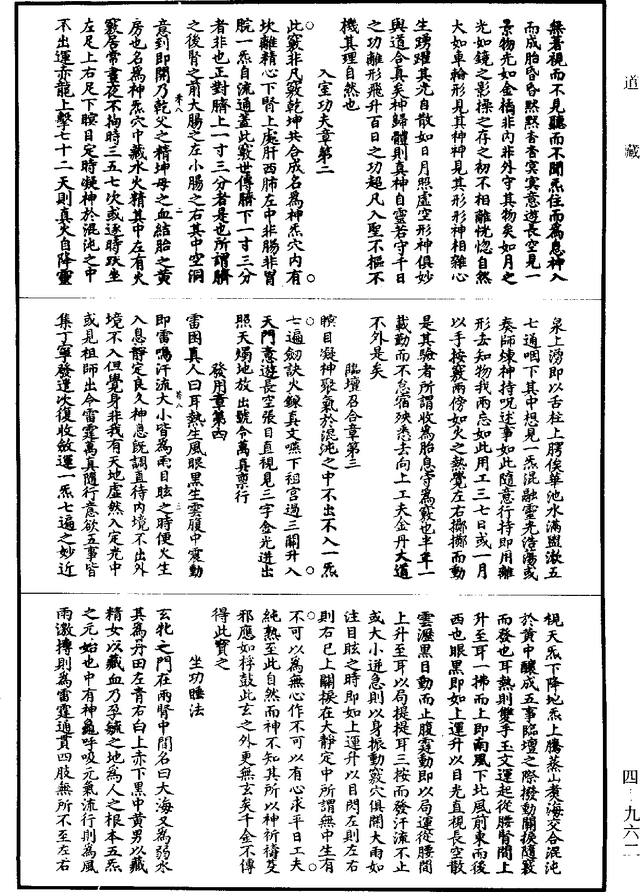 槃著視而不見聽而不聞炁住而爲息神入
而成胎昏昏默默杳杳冥冥意遊長空見一
景物光如金橘非内非外守其物矣如月之
光如鏡之影操之存之初不相離恍惚自然
大如車輪形見其神神見其形形神相雜心
生踴躍其光自散如日月照虛空形神俱妙
與道合真矣神歸體則真神自靈若守千日
之功離形飛升百日之功超凡入聖不樞不
機其理自然也
入室功夫章第二
此竅非凡竅乾坤共合成名爲神炁穴内有
坎離精心下腎上處肝西肺左中非腸非胃
脘一炁自流通蓋此竅世傳臍下一寸三分
者非也正對臍上一寸三分者是也所謂臍
之後腎之前大腸之左小腸之右其中空洞
意到即開乃乾父之精坤母之血結胎之黄
房也名爲神炁穴中藏水火精其中左有火
竅居常晝夜不拘時三五七次或逐時趺坐
左足上右足下瞑目定時凝神於混沌之中
不出運亦龍上擊七十二天則真火自降靈
泉上湧即以舌柱上腭俟華池水滿盟漱五
七遍咽下其中想見一炁混融靈光浩蕩或
奏師煉神持呪逹事如此隨意行持即用離
形去知物我兩忘如此用工三七日或一月
以手按竅兩傍如火之熱覺左右擲擲而動
是其驗者所謂收爲胎息守爲竅也半年一
載勤而不怠宿殃悉去向上工夫金丹大道
不外是矣
臨壇召合章第三
瞑目凝神聚氣於混沌之中不出不入一炁
七遍劒訣火鍊真文嚥下祖宫過三關升入
天門意遊長空張目直視見三字金光迸出
照天燭地放出號令萬真禀行
發用章第四
雷困真人曰耳熱生風眼黑生雲腹中震動
即雷鳴汗流大小皆爲雨目眩之時便火生
入息靜定良久神息既調直待内境不出外
境不入但覺身非我有天地虛然入定光中
或見祖師出令雷霆萬真隨行意欲五事皆
集丁寧發遣次復收斂運一炁七遍之妙近
視天炁下降地炁上騰蒸山煑海交合混沌
於黄中釀成五事臨壇之際撥動關捩隨竅
而發也耳熱則雙手玉文運起從腰脊間上
升至耳一拂而上即南風下北風前東而後
西也眼黑即如上運升以目光直視長空散
雲瀝黑日動而止腹震動即以局運從腰間
上升至耳以局提提耳三按而發汗流不止
或大小逆急則以身振動竅穴俱開大雨如
注目眩之時即如上運升以目閃左則左右
則右已上關捩在大靜定中所謂無中生有
不可以爲無心作不可以有心求平日工夫
純熟至此自然而神不知其所以神祈禱芟
邪應如桴鼓此玄之外更無玄矣千金不傳
得此寶之
坐功睡法
玄牝之門在兩腎中間名曰大海又爲弱水
其爲丹田左青右白上赤下黑中黄男以藏
精女以藏血乃孕毓之地爲人之根本五炁
之元始也中有神龜呼吸元氣流行則爲風
雨激摶則爲雷霆通貫四肢無所不至左右
道藏
四·九六二